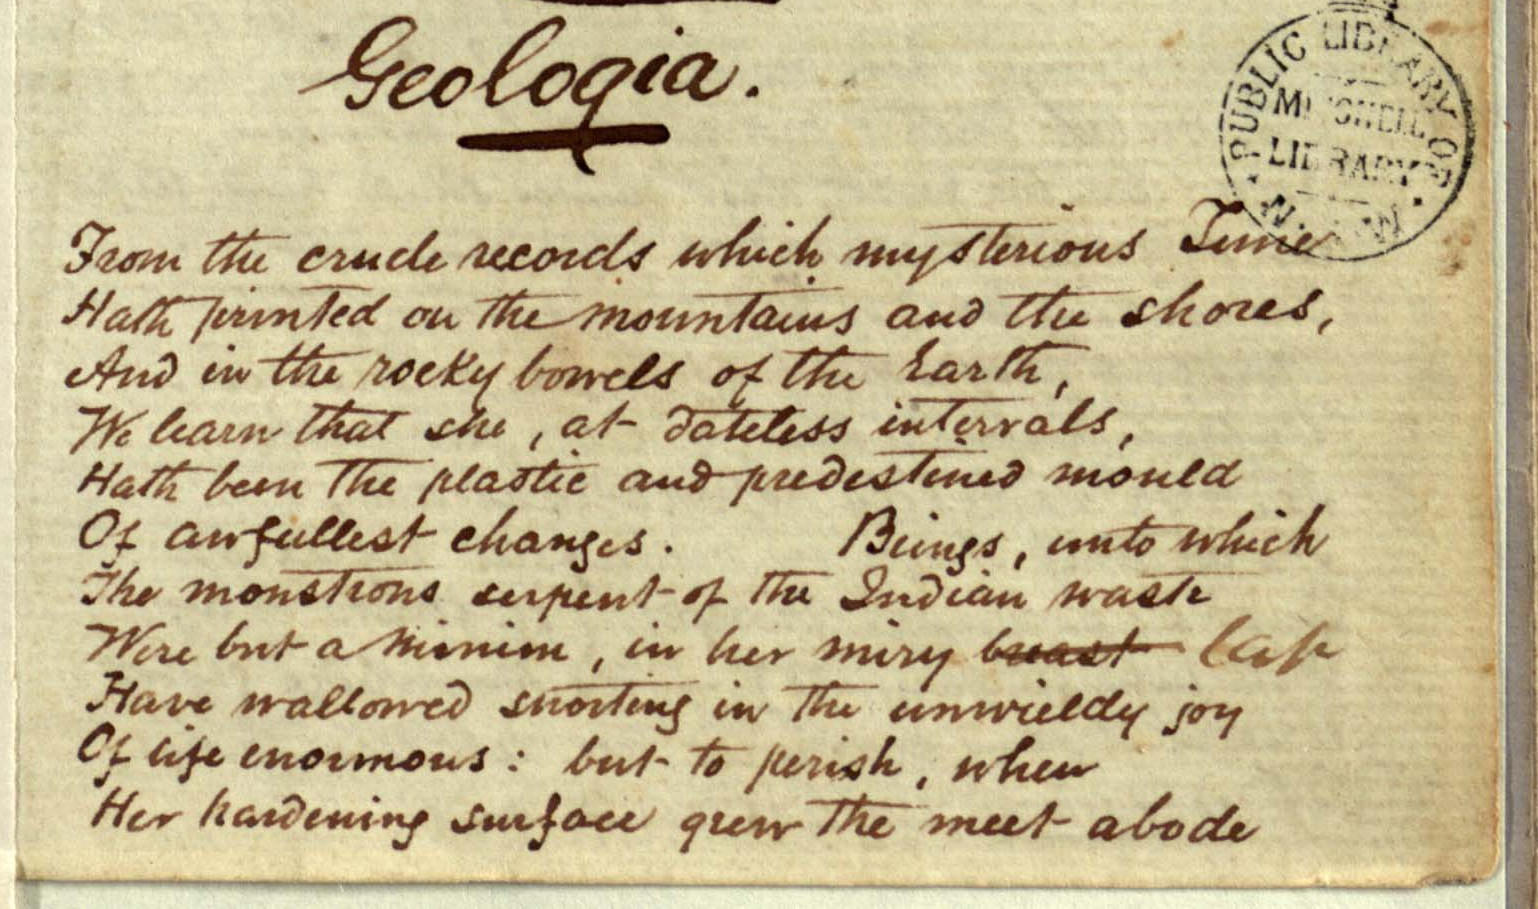 Geologia.
PUBLIC LIBRARY OF N.S.W.
MITCHELL
LIBRARY
From the crude records which mysterious Time
Hath printed on the mountains and the shores,
And in the rocky bowels of the Earth,
We learn that she, at dateless intervals,
Hath been the plastic and predestined mould
Of awfullest changes. Beings, unto which
The monstrous serpent of the Indian waste
Were but a minim, in her miry breast lap
Have wallowed snorting in the unwieldy joy
Of life enormous: but to perish, when
Her hardening surface grew the meet abode